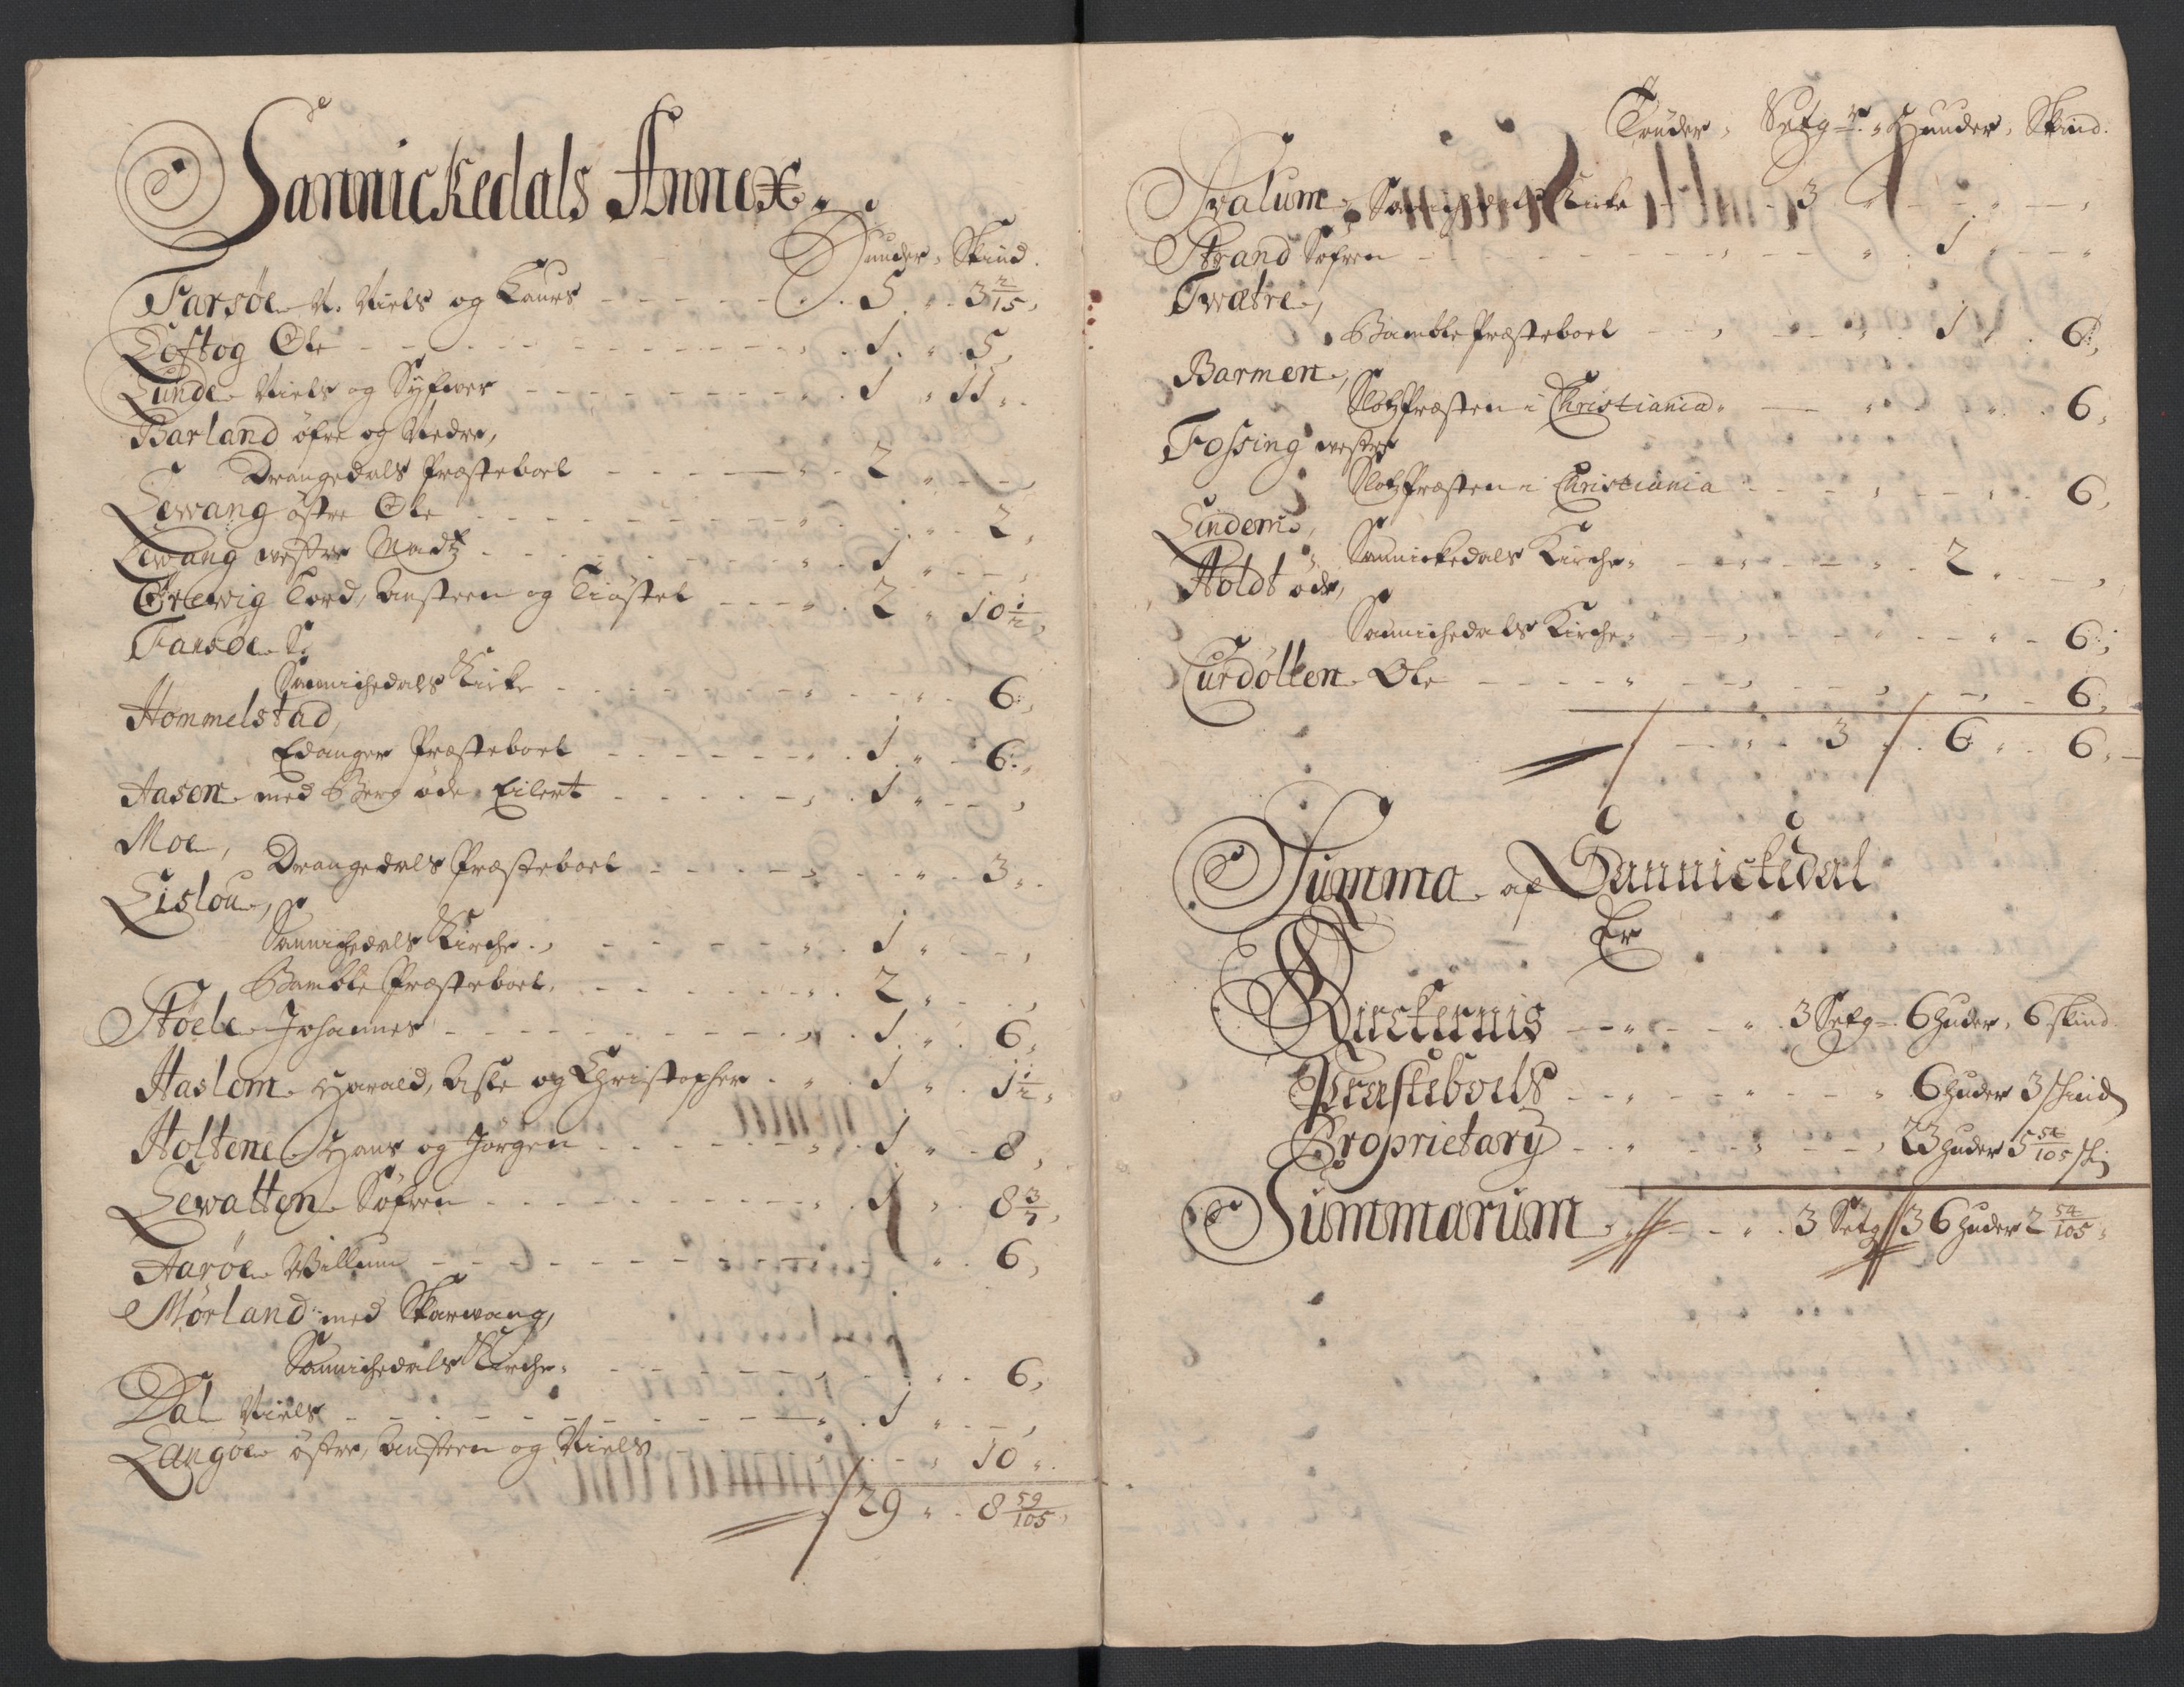 Sannickedals Annex.
Hunder, Skind.
Farsøe N. Niels og Laurs - - - 5 " 3 2/15,
Loftog Ole - - - 1 " 5,
Lunde Niels og Syfwer - - - 1 " 11 "
Barland øfre og Nedre,
Drangedals Præsteboel - - - 2 " - ,
Lewang østre Ole - - - " 2,
Lewang westre Madtz - - - 1 " - ,
Ørewig Tord, Ansteen og Kiøstel - - - 2 " 10 1/2,
Farsøe S:
Sannichedals Kirke - - - 6,
Hommelstad,
Edanger Præsteboel - - - 1 " 6 "
Aasen med Berg øde Eilert - - - 1 " - ,
Moe,
Drangedals Præsteboel - - - " 3 "
Lislou,
Sannichedals Kirche - - - 1 " - ,
Bamble Præsteboel - - - 2 " - ,
Støele Johannes - - - 1 " 6,
Haslem Harald, Asle og Christopher - 1 " 1 1/2 "
Holtene Hans og Jørgen - - - 1 " 8,
Lewatten Søfren - - - 1 " 8 3/7,
Aarøe Willum - - - " 6,
Mørland med Skarwang,
Sannichedals Kirche - - - " 6,
Dal Niels - - - 1 " - ,
Langøe østre, Ansteen og Niels - - - " 10 "
29 " 8 59/105,
Tønder, Setg r. " Hunder, Skind.
Svalum, Sannichedals Kirke - - - 3 " - " - ,
Strand Søfren - - - " 1 " - "
Twætre,
Bamble Præsteboel - - - 1 " 6,
Barmen,
Slotz Præsten i Christiania - - - 6,
Fossing westre
Slotz Præsten i Christiania - - - 6,
Lindem,
Sannickedals Kirche - - - 2 " - ,
Holdt øde,
Sannichedals Kirche - - - 6,
Turdølten Ole - - - 6,
3 " 6 " 6 " -
Summa af Sannickedal
Er
Kirckernis - - - 3 Setg 6 Huder, 6 skind
Præsteboels - - - 6 Huder 3 skind
Proprietary - - - 23 Huder 5 54/105 ski
Summarum - - - 3 Setg 36 Huder 2 54/105,